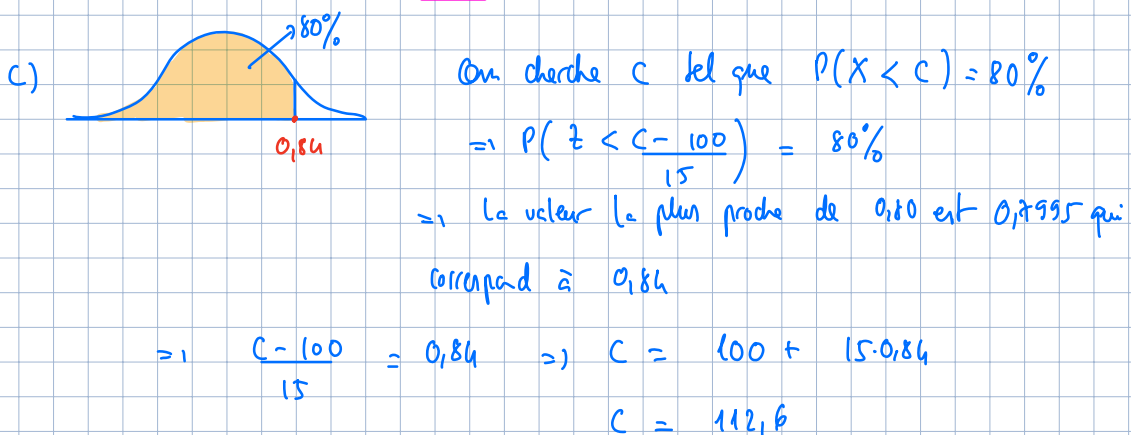 80%
C) On cherche C tel que P(X < C) = 80%
0,84
=> P(Z < (C - 100)/15) = 80%
=> La valeur la plus proche de 0,80 est 0,7995 qui
correspond à 0,84
=> (C - 100)/15 = 0,84 => C = 100 + 15·0,84
C = 112,6